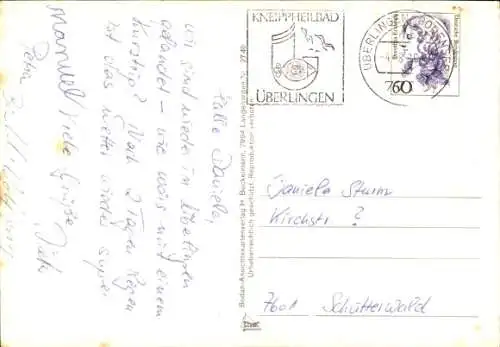 Hallo Daniela,
wir sind wieder in Überlingen
gelandet – wie wärs mit einem
Kurztrip? Nach 2 Tagen Regen
ist das Wetter wieder super
Viele Grüße
Manuel
Petra
KNEIPPHEILBAD
ÜBERLINGEN
ÜBERLINGEN, BODENSEE
Deutsche Bundespost
60
Daniela Sturm
Kirchstr ?
7601 Schutterwald
Bodan-Ansichtskartenverlag M. Bockelmann, 7994 Langenargen
Urheberrechtlich geschützt. Reproduktion verboten.